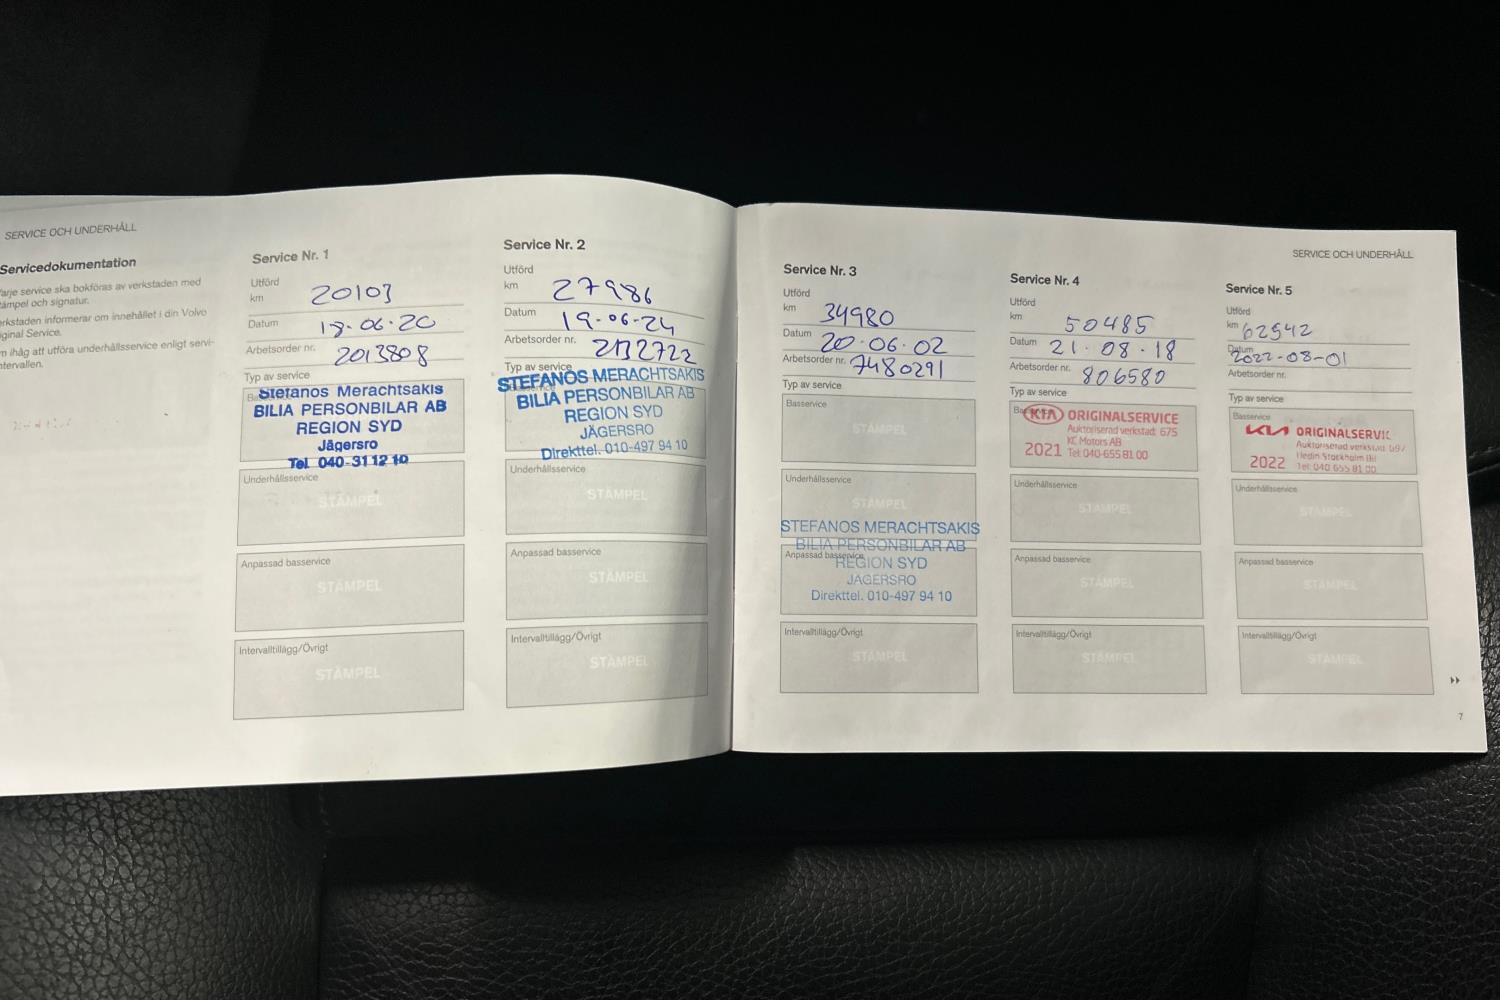 SERVICE OCH UNDERHÅLL
Servicedokumentation
Varje service ska bokföras av verkstaden med
stämpel och signatur.
Verkstaden informerar om innehållet i din Volvo
Original Service.
Kom ihåg att utföra underhållsservice enligt servi-
ceintervallen.
Service Nr. 1
Utförd
km 20103
Datum 18-06-20
Arbetsorder nr. 2013808
Typ av service
Stefanos Merachtsakis
BILIA PERSONBILAR AB
REGION SYD
Jägersro
Tel 040-31 12 10
Underhållsservice
STÄMPEL
Anpassad basservice
STÄMPEL
Intervalltillägg/Övrigt
STÄMPEL
Service Nr. 2
Utförd
km 27986
Datum 19-06-24
Arbetsorder nr. 2132722
Typ av service
STEFANOS MERACHTSAKIS
BILIA PERSONBILAR AB
REGION SYD
JÄGERSRO
Direkttel. 010-497 94 10
Underhållsservice
STÄMPEL
Anpassad basservice
STÄMPEL
Intervalltillägg/Övrigt
STÄMPEL
SERVICE OCH UNDERHÅLL
Service Nr. 3
Utförd
km 34980
Datum 20-06-02
Arbetsorder nr. 7480291
Typ av service
Basservice
STÄMPEL
Underhållsservice
STÄMPEL
STEFANOS MERACHTSAKIS
BILIA PERSONBILAR AB
Anpassad basservice
REGION SYD
JÄGERSRO
Direkttel. 010-497 94 10
Intervalltillägg/Övrigt
STÄMPEL
Service Nr. 4
Utförd
km 50485
Datum 21-08-18
Arbetsorder nr. 806580
Typ av service
Basservice
KIA ORIGINALSERVICE
Auktoriserad verkstad: 675
KC Motors AB
2021 Tel: 040-655 81 00
Underhållsservice
STÄMPEL
Anpassad basservice
STÄMPEL
Intervalltillägg/Övrigt
STÄMPEL
Service Nr. 5
Utförd
km 62542
Datum 2022-08-01
Arbetsorder nr.
Typ av service
Basservice
KIA ORIGINALSERVIC
Auktoriserad verkstad 697
Hedin Stockholm Bil
2022 Tel: 040 655 81 00
Underhållsservice
STÄMPEL
Anpassad basservice
STÄMPEL
Intervalltillägg/Övrigt
STÄMPEL
7